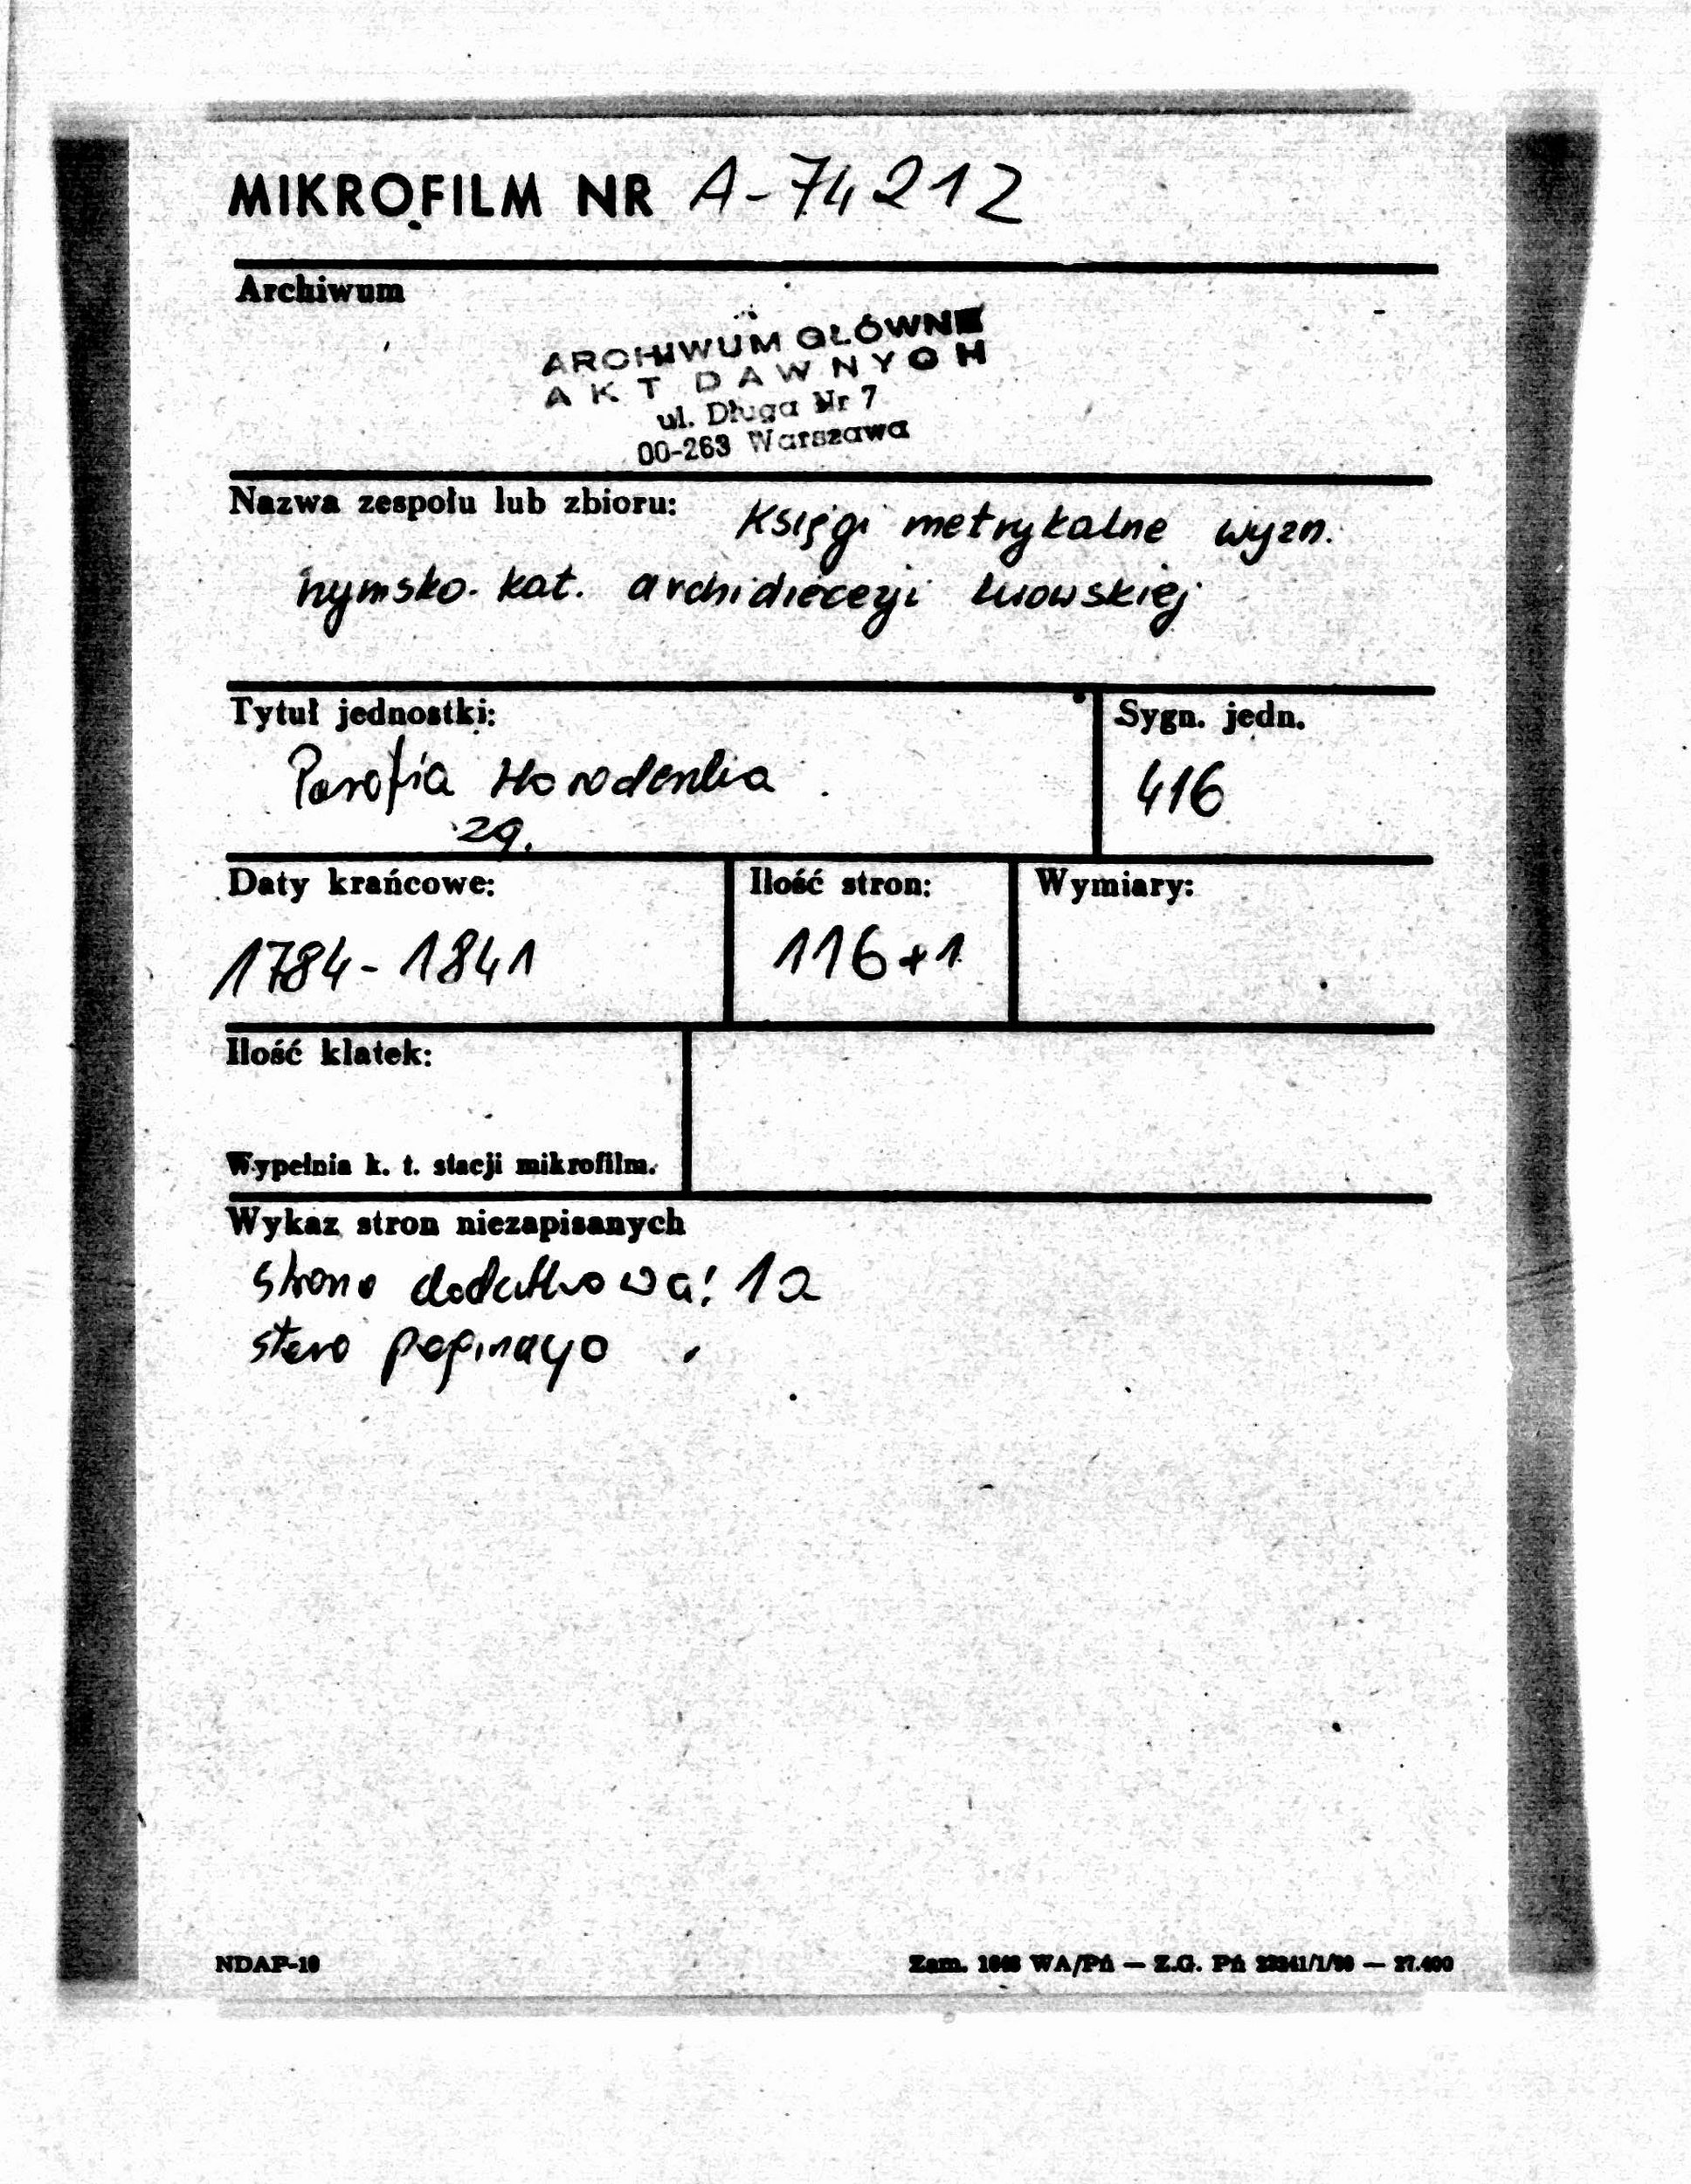 MIKROFILM NR A-74212
Archiwum
ARCHIWUM GŁÓWNE
AKT DAWNYCH
ul. Długa Nr 7
00-263 Warszawa
Nazwa zespołu lub zbioru: Księgi metrykalne wyzn.
rzymsko-kat. archidiecezji lwowskiej
Tytuł jednostki: Sygn. jedn.
Parafia Horodenka 416
zg.
Daty krańcowe: Ilość stron: Wymiary:
1784-1841 116+1
Ilość klatek:
Wypełnia k. t. stacji mikrofilm.
Wykaz stron niezapisanych
strona dodatkowa! 1a
stara paginacja
NDAP-10
Zam. WA/Pń — Z.G. Pń — 27.400